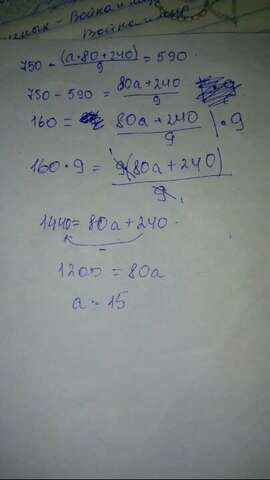 Война и
Война и
750 - (a·80+240)/9 = 590.
750 - 590 = 80a+240/9
160 = 80a+240/9 | · 9
160·9 = 9(80a+240)/9
1440 = 80a+240.
-
1200 = 80a
a = 15